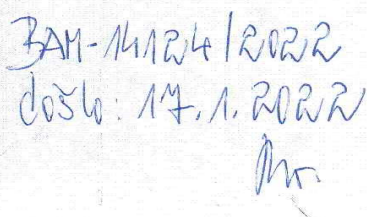 BAM-14124/2022
došlo: 17.1.2022